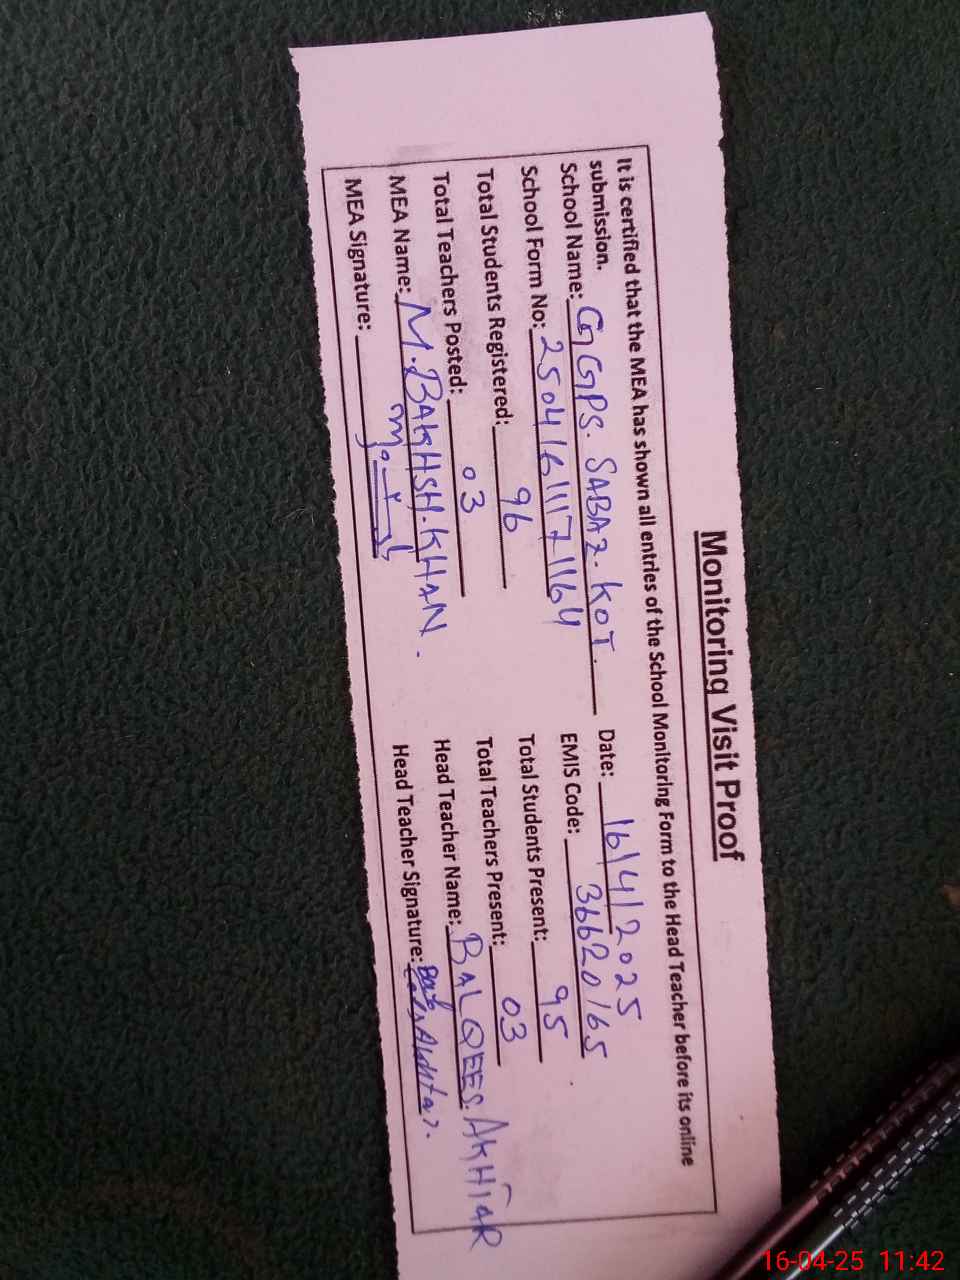 Monitoring Visit Proof
It is certified that the MEA has shown all entries of the School Monitoring Form to the Head Teacher before its online
submission.
Date: 16/4/2025
School Name: GGPS. SABAZ. KOT.
EMIS Code: 36620165
School Form No: 25041611171164
Total Students Present: 95
Total Students Registered: 96
Total Teachers Present: 03
Total Teachers Posted: 03
Head Teacher Name: BALQEES. AKHTAR
MEA Name: M. BAKHSH. KHAN.
Head Teacher Signature: Akhtar.
MEA Signature:
16-04-25 11:42